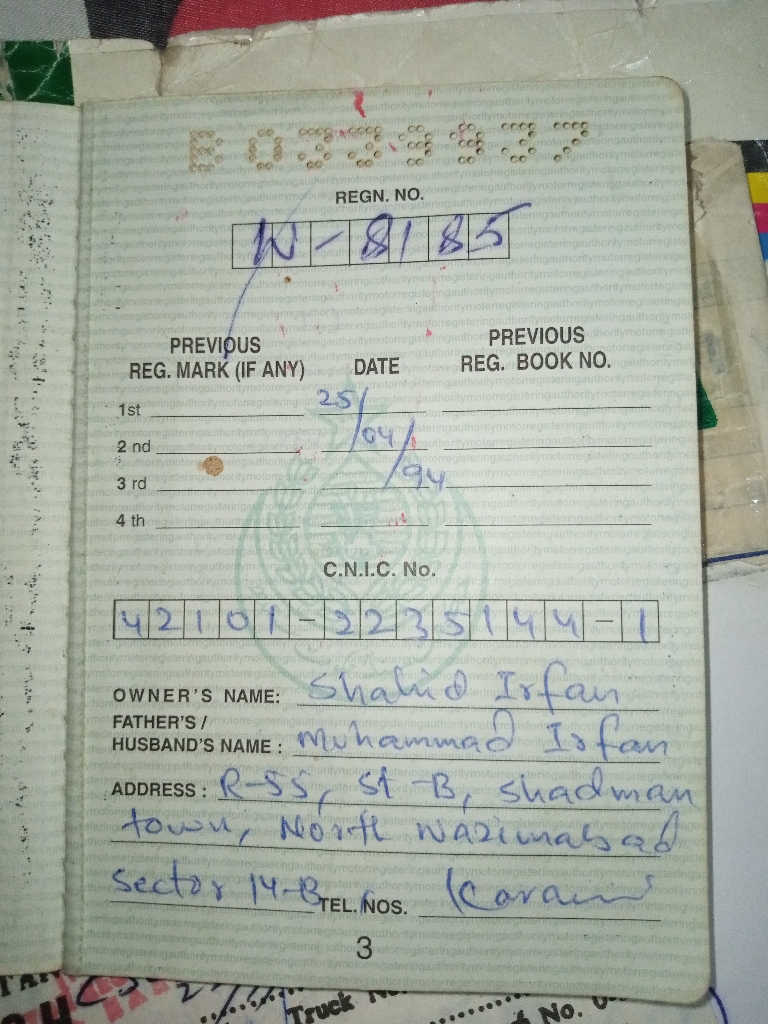 REGN. NO.
W-8185
PREVIOUS REG. MARK (IF ANY) DATE PREVIOUS REG. BOOK NO.
1st 25/
2 nd 04/
3 rd 94
4 th
C.N.I.C. No.
42101-2235144-1
OWNER'S NAME: Shahid Irfan
FATHER'S /
HUSBAND'S NAME : Muhammad Irfan
ADDRESS : R-55, St-B, Shadman
town, North Nazimabad
Sector 14-B, TEL. NOS. Karachi
3
Truck
No.